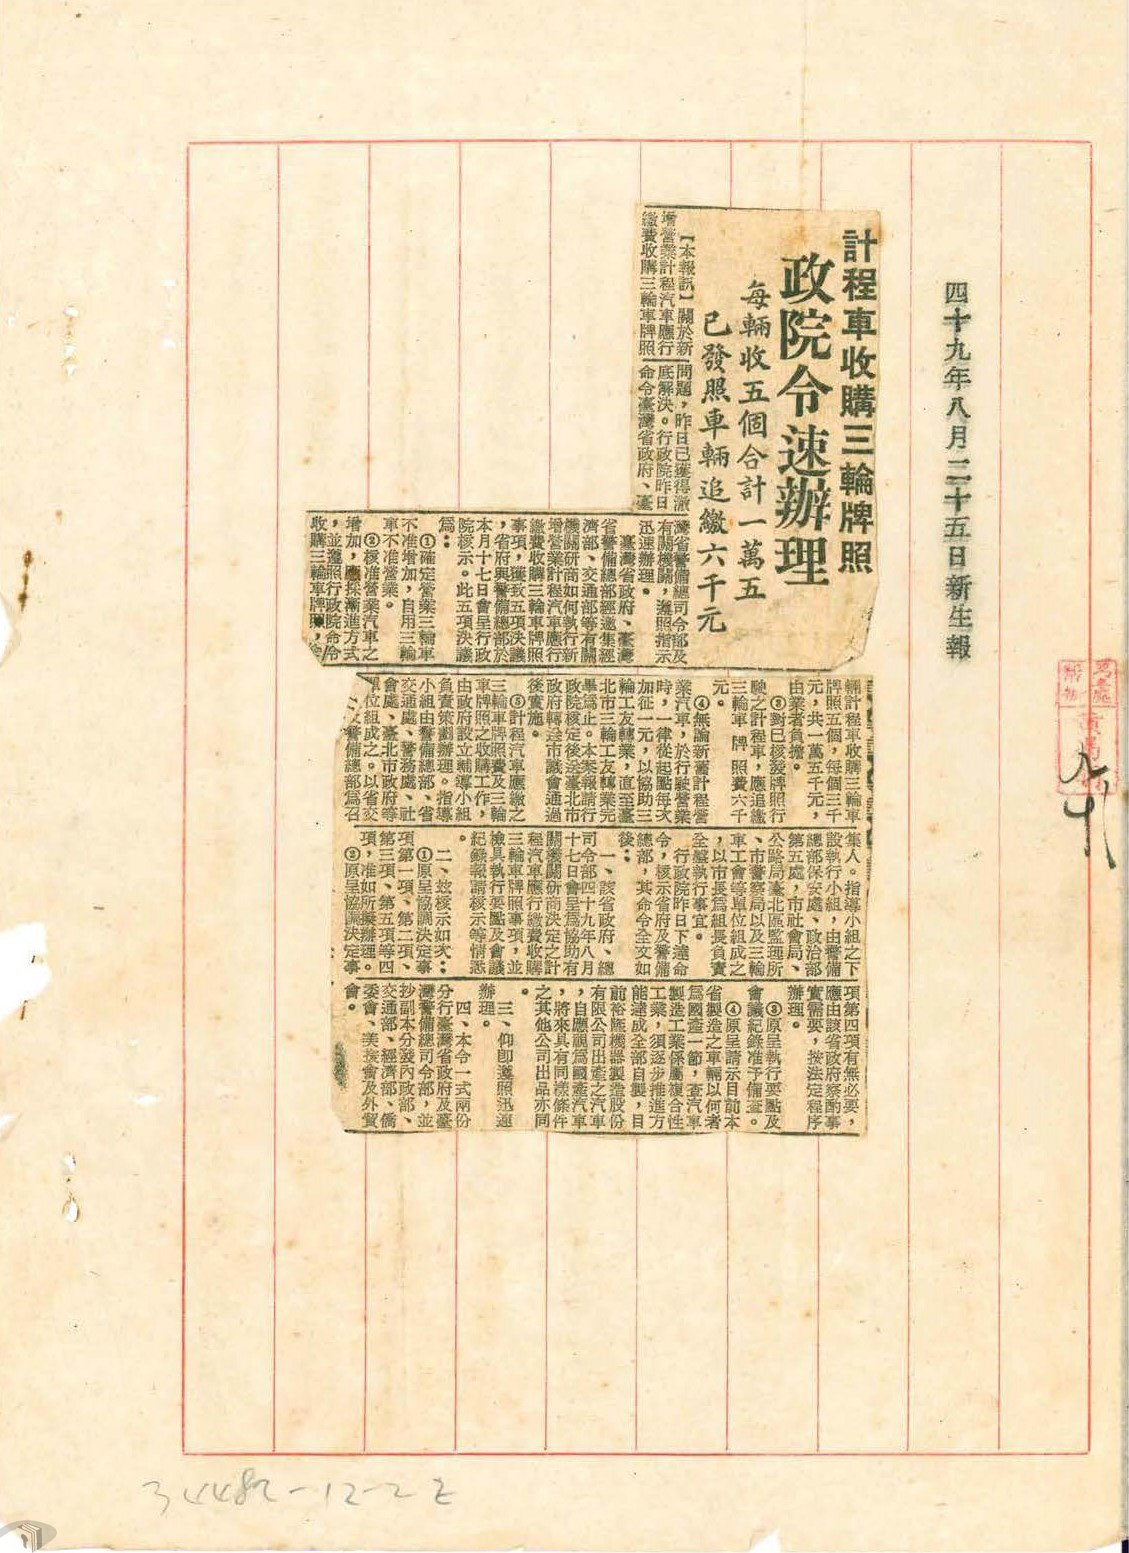 四十九年八月二十五日新生報
計程車收購三輪牌照
政院令速辦理
每輛收五個合計一萬五
已發照車輛追繳六千元
【本報訊】關於新
增營業計程汽車應行
繳費收購三輪車牌照
問題,昨日已獲得澈
底解決。行政院昨日
命令臺灣省政府、臺
灣省警備總司令部及
有關機關,遵照指示
迅速辦理。
臺灣省政府、臺灣
省警備總部經邀集經
濟部、交通部等有關
機關研商如何執行新
增營業計程汽車應行
繳費收購三輪車牌照
事項,獲致五項決議
,省府與警備總部於
本月十七日會呈行政
院核示。此五項決議
爲:
①確定營業三輪車
不准增加,自用三輪
車不准營業。
②核准營業汽車之
增加,應採漸進方式
,並遵照行政院命令
收購三輪車牌照,
輛計程車收購三輪車
牌照五個,每個三千
元,共一萬五千元,
由業者負擔。
③對已核發牌照行
駛之計程車,應追繳
三輪車牌照費六千
元。
④無論新舊計程營
業汽車,於行駛營業
時,一律從起點每次
加征一元,以協助三
輪工友轉業,直至臺
北市三輪工友轉業完
畢爲止。本案報請行
政院核定後送臺北市
政府轉送市議會通過
後實施。
⑤計程汽車應繳之
三輪車牌照費及三輪
車牌照之收購工作,
由政府設立輔導小組
負責策劃辦理。指導
小組由警備總部、省
交通處、警務處、社
會處、臺北市政府等
單位組成之。以省交
警備總部爲召
集人。指導小組之下
設執行小組,由警備
總部保安處、政治部
第五處,市社會局、
公路局臺北區監理所
、市警察局以及三輪
車工會等單位組成之
,以市長爲組長負責
全盤執行事宜。
行政院昨日下達命
令,核示省府及警備
總部,其命令全文如
後:
一、該省政府、總
司令部四十九年八月
十七日會呈爲協助有
關機關研商決定之計
程汽車應行繳費收購
三輪車牌照事項,並
檢具執行要點及會議
紀錄報請核示等情悉
。
二、茲核示如次:
①原呈協調決定事
項第一項、第二項、
第三項、第五項等四
項,准如所擬辦理。
②原呈協調決定事
項第四項有無必要,
應由該省政府察酌事
實需要,按法定程序
辦理。
③原呈執行要點及
會議紀錄准予備查。
④原呈請示目前本
省製造之車輛以何者
爲國產一節,查汽車
製造工業係屬複合性
工業,須逐步推進方
能達成全部自製,目
前裕隆機器製造股份
有限公司出產之汽車
,自應視爲國產汽車
,將來具有同樣條件
之其他公司出品亦同
。
三、仰卽遵照迅速
辦理。
四、本令一式兩份
分行臺灣省政府及臺
灣警備總司令部,並
抄副本分發內政部、
交通部、經濟部、僑
委會、美援會及外貿
會。
34482-12-2